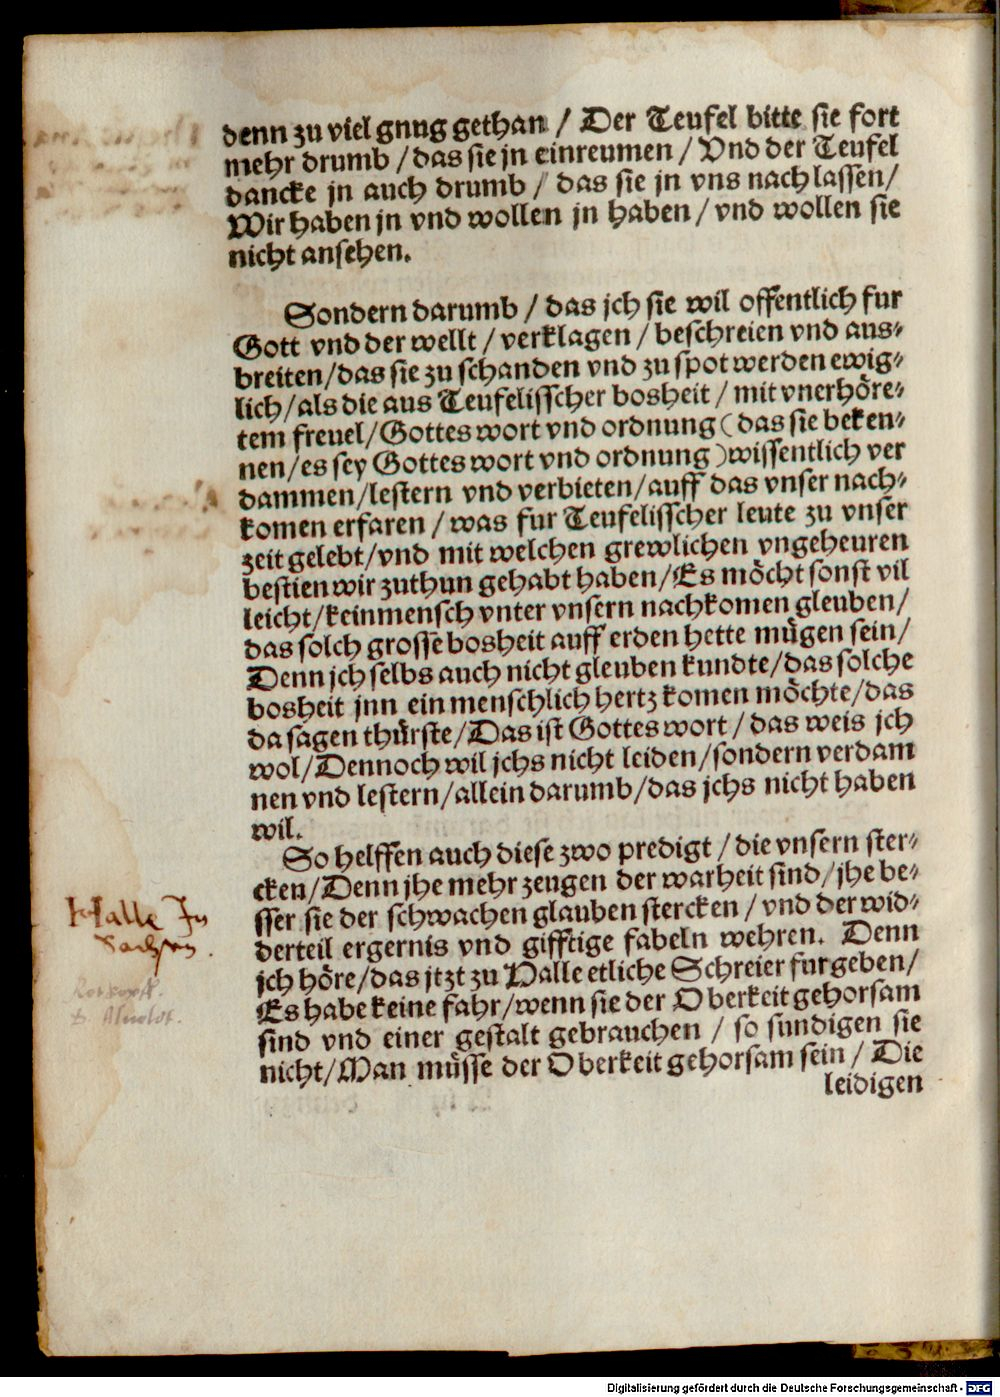 denn zu viel gnug gethan / Der Teufel bitte sie fort
mehr drumb / das sie jn einreumen / Vnd der Teufel
dancke jn auch drumb / das sie jn vns nach lassen/
Wir haben jn vnd wollen jn haben / vnd wollen sie
nicht ansehen.
Sondern darumb / das jch sie wil offentlich fur
Gott vnd der wellt / verklagen / beschreien vnd aus-
breiten/das sie zu schanden vnd zu spot werden ewig-
lich/als die aus Teufelisscher bosheit / mit vnerhöre-
tem freuel/Gottes wort vnd ordnung (das sie beken-
nen/es sey Gottes wort vnd ordnung) wissentlich ver
dammen/lestern vnd verbieten/auff das vnser nach-
komen erfaren / was fur Teufelisscher leute zu vnser
zeit gelebt/vnd mit welchen grewlichen vngeheuren
bestien wir zuthun gehabt haben/Es möcht sonst vil
leicht/kein mensch vnter vnsern nachkomen gleuben/
das solch grosse bosheit auff erden hette mügen sein/
Denn jch selbs auch nicht gleuben kundte/das solche
bosheit jnn ein menschlich hertz komen möchte/das
da sagen thürste/Das ist Gottes wort / das weis jch
wol/Dennoch wil jchs nicht leiden/sondern verdam
nen vnd lestern/allein darumb/das jchs nicht haben
wil.
So helffen auch diese zwo predigt / die vnsern ster-
cken/Denn jhe mehr zeugen der warheit sind/jhe be-
sser sie der schwachen glauben stercken / vnd der wid-
derteil ergernis vnd gifftige fabeln wehren. Denn
jch höre/das jtzt zu Halle etliche Schreier furgeben/
Es habe keine fahr/wenn sie der Oberkeit gehorsam
sind vnd einer gestalt gebrauchen / so sundigen sie
nicht/Man müsse der Oberkeit gehorsam sein / Die
leidigen
Halle In
Sachsen.
Digitalisierung gefördert durch die Deutsche Forschungsgemeinschaft - DFG